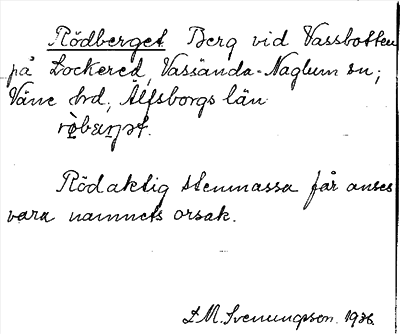 Rödberget Berg vid Vassbotten
på Lockered, Vassända-Naglum sn;
Väne hrd, Älfsborgs län
Rödaktig stenmassa får anses
vara namnets orsak.
L.M. Svenungsson 1926